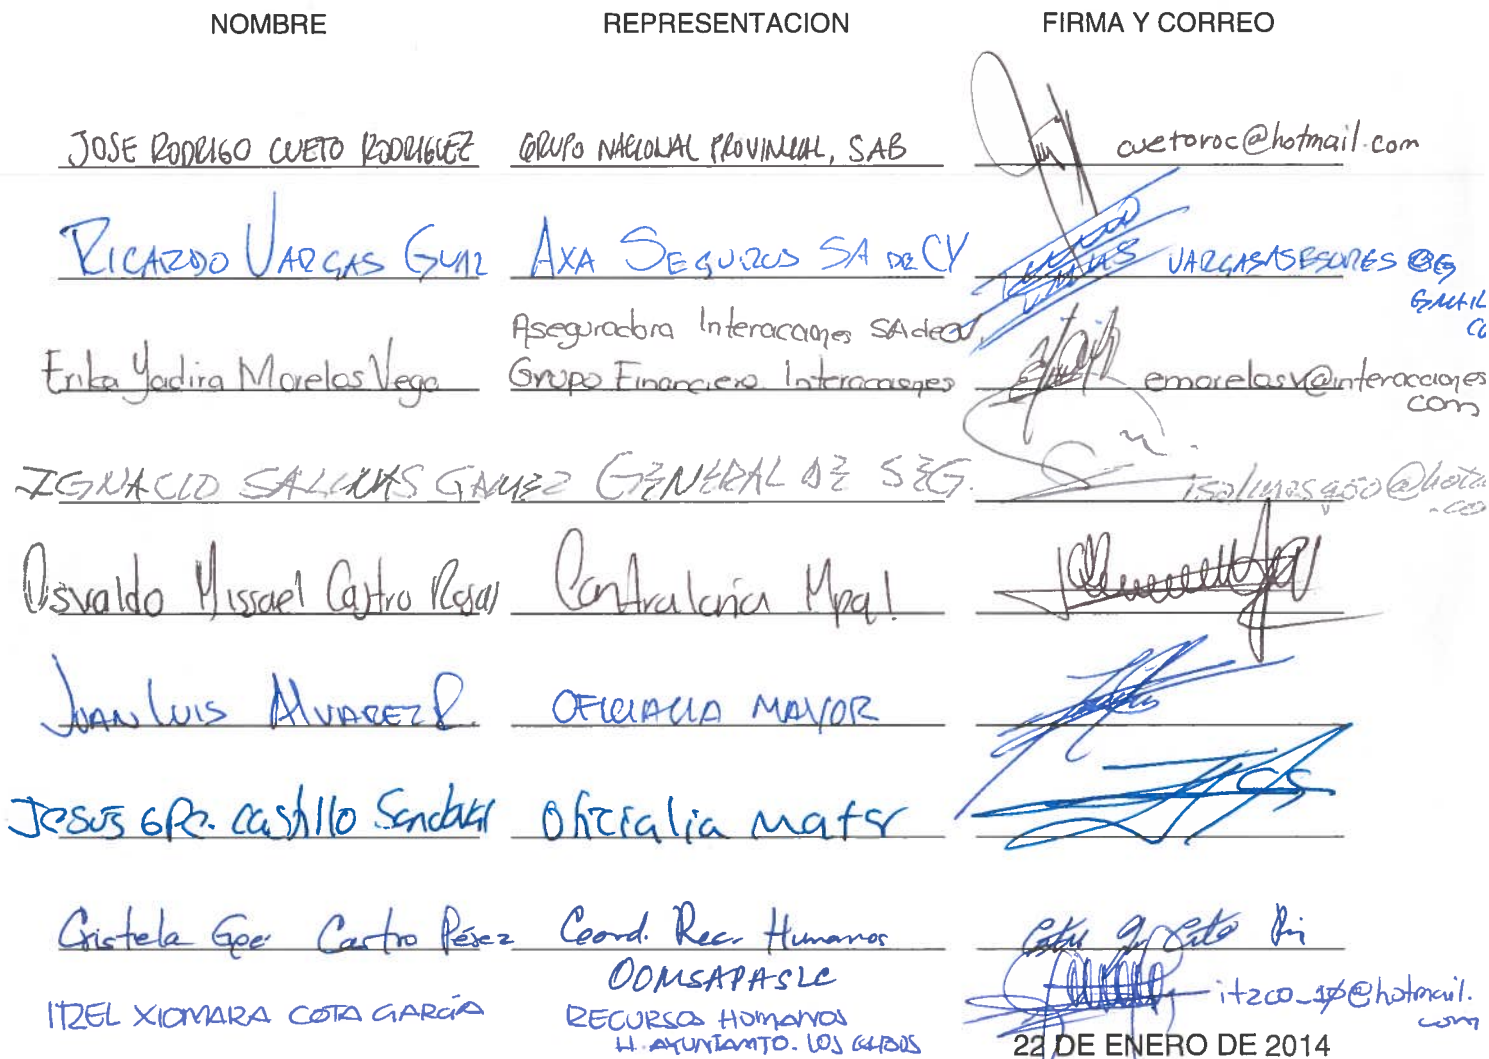 NOMBRE REPRESENTACION FIRMA Y CORREO
JOSE RODRIGO CUETO RODRIGUEZ GRUPO NACIONAL PROVINCIAL, SAB cuetoroc@hotmail.com
RICARDO VARGAS AXA SEGUROS SA DE CV VARGASASESORES @
GMAIL
Aseguradora Interacciones SA de CV
Erika Yadira Morelos Vega Grupo Financiero Interacciones emorelosv@interacciones
com
IGNACIO SALINAS GAMEZ GENERAL DE SEG.
Osvaldo Missael Castro Rosas Contraloria Mpal
JUAN LUIS ALVAREZ R. OFICIALIA MAYOR
JESUS GPE. Castillo Sandoval Oficialia
Cristela Gpe Castro Pérez Coord. Rec. Humanos
OOMSAPASLC
ITZEL XIOMARA COTA GARCÍA RECURSOS HUMANOS @hotmail.
com
H. AYUNTAMTO. LOS CABOS
22 DE ENERO DE 2014